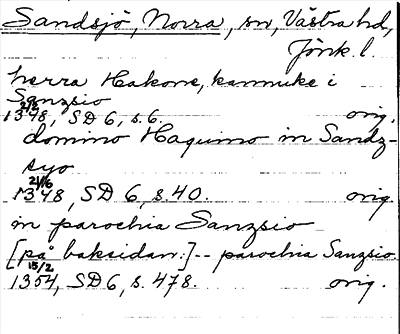 Sandsjö, Norra, sn, Västra hd,
Jönk. l.
herra Hakone, kannuke i
Sanzsio
1348, SD 6, s. 6. orig.
domino Haquino in Sandz-
syo
21/6
1348, SD 6, s. 40. orig.
in parochia Sanzsio
[på baksidan:] -- parochia Sanzsio
15/2
1354, SD 6, s. 478. orig.